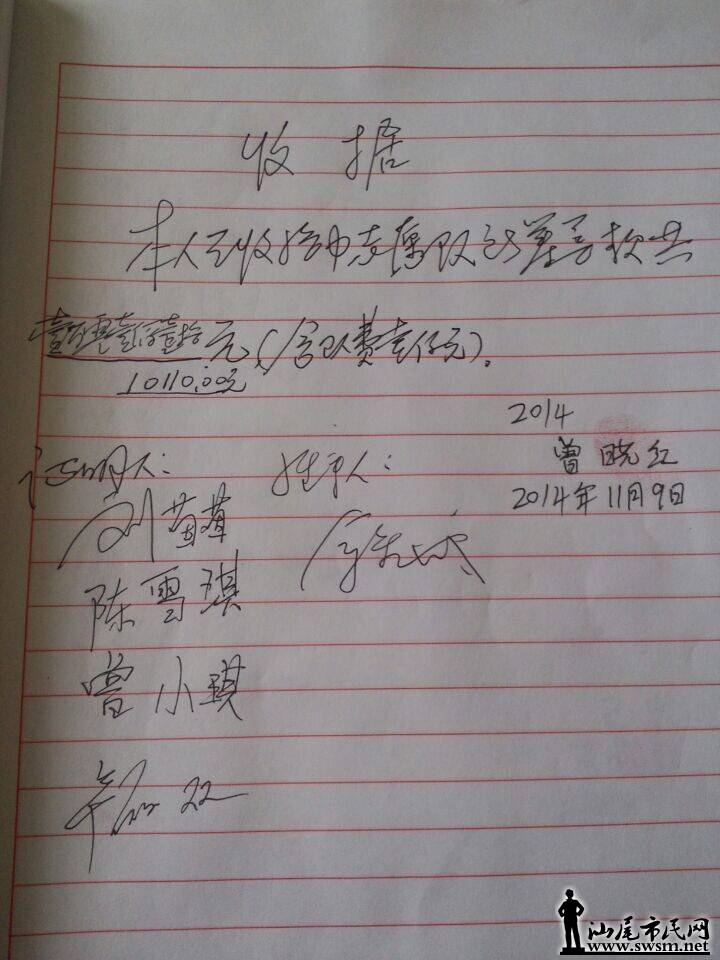 收据
本人已收给中志愿队的筹善款共
壹万零壹佰壹拾元(含队费壹仟元)。
10110.00元
2014
证明人: 经手人: 曾晓红
2014年11月9日
刘苗苗
陈雪琪
曾小琪
汕尾市民网
www.swsm.net